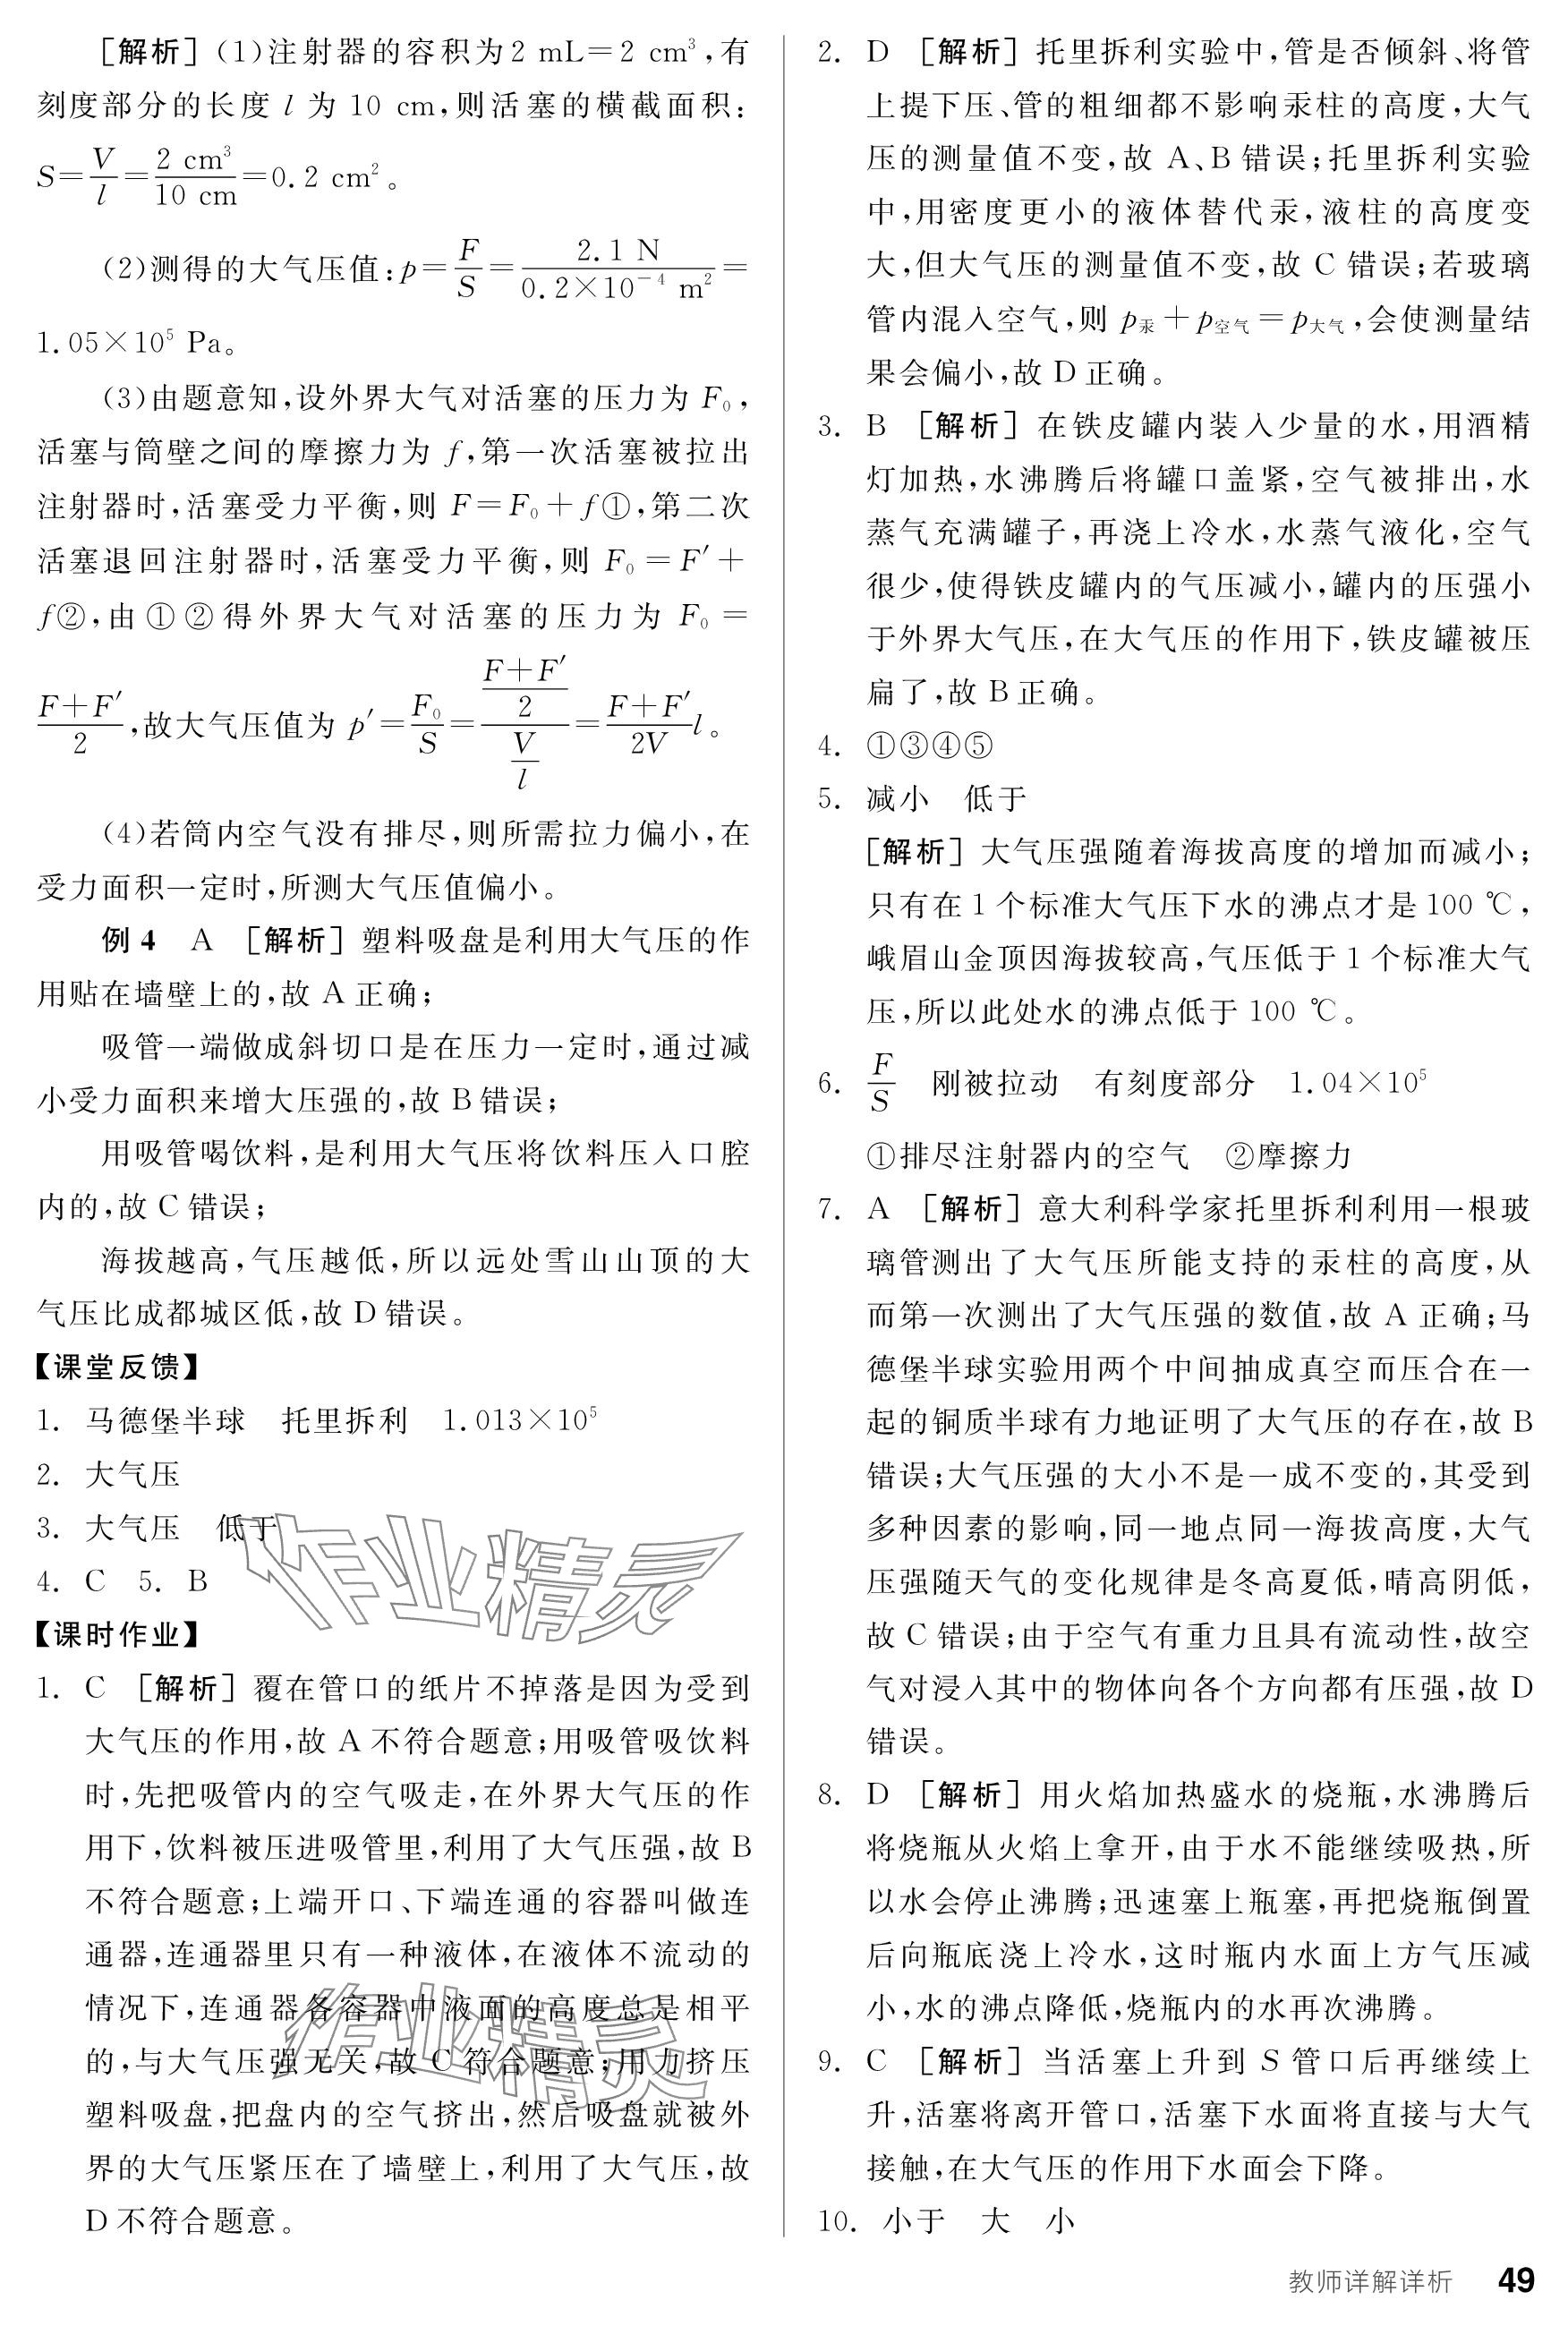 [解析](1)注射器的容积为2 mL=2 cm³,有
刻度部分的长度 l 为 10 cm,则活塞的横截面积:
S=V/l=2 cm³/10 cm=0.2 cm²。
(2)测得的大气压值:p=F/S=2.1 N/0.2×10⁻⁴ m²=
1.05×10⁵ Pa。
(3)由题意知,设外界大气对活塞的压力为 F₀,
活塞与筒壁之间的摩擦力为 f,第一次活塞被拉出
注射器时,活塞受力平衡,则 F=F₀+f①,第二次
活塞退回注射器时,活塞受力平衡,则 F₀=F′+
f②,由①②得外界大气对活塞的压力为 F₀=
(F+F′)/2,故大气压值为 p′=F₀/S=((F+F′)/2)/(V/l)=(F+F′)/2V l。
(4)若筒内空气没有排尽,则所需拉力偏小,在
受力面积一定时,所测大气压值偏小。
例4 A [解析]塑料吸盘是利用大气压的作
用贴在墙壁上的,故 A 正确;
吸管一端做成斜切口是在压力一定时,通过减
小受力面积来增大压强的,故 B 错误;
用吸管喝饮料,是利用大气压将饮料压入口腔
内的,故 C 错误;
海拔越高,气压越低,所以远处雪山山顶的大
气压比成都城区低,故 D 错误。
【课堂反馈】
1. 马德堡半球 托里拆利 1.013×10⁵
2. 大气压
3. 大气压 低于
4. C 5. B
【课时作业】
1. C [解析]覆在管口的纸片不掉落是因为受到
大气压的作用,故 A 不符合题意;用吸管吸饮料
时,先把吸管内的空气吸走,在外界大气压的作
用下,饮料被压进吸管里,利用了大气压强,故 B
不符合题意;上端开口、下端连通的容器叫做连
通器,连通器里只有一种液体,在液体不流动的
情况下,连通器各容器中液面的高度总是相平
的,与大气压强无关,故 C 符合题意;用力挤压
塑料吸盘,把盘内的空气挤出,然后吸盘就被外
界的大气压紧压在了墙壁上,利用了大气压,故
D 不符合题意。
作业精灵
作业精灵
2. D [解析]托里拆利实验中,管是否倾斜、将管
上提下压、管的粗细都不影响汞柱的高度,大气
压的测量值不变,故 A、B 错误;托里拆利实验
中,用密度更小的液体替代汞,液柱的高度变
大,但大气压的测量值不变,故 C 错误;若玻璃
管内混入空气,则 p汞+p空气=p大气,会使测量结
果会偏小,故 D 正确。
3. B [解析]在铁皮罐内装入少量的水,用酒精
灯加热,水沸腾后将罐口盖紧,空气被排出,水
蒸气充满罐子,再浇上冷水,水蒸气液化,空气
很少,使得铁皮罐内的气压减小,罐内的压强小
于外界大气压,在大气压的作用下,铁皮罐被压
扁了,故 B 正确。
4. ①③④⑤
5. 减小 低于
[解析]大气压强随着海拔高度的增加而减小;
只有在 1 个标准大气压下水的沸点才是 100 ℃,
峨眉山金顶因海拔较高,气压低于 1 个标准大气
压,所以此处水的沸点低于 100 ℃。
6. F/S 刚被拉动 有刻度部分 1.04×10⁵
①排尽注射器内的空气 ②摩擦力
7. A [解析]意大利科学家托里拆利利用一根玻
璃管测出了大气压所能支持的汞柱的高度,从
而第一次测出了大气压强的数值,故 A 正确;马
德堡半球实验用两个中间抽成真空而压合在一
起的铜质半球有力地证明了大气压的存在,故 B
错误;大气压强的大小不是一成不变的,其受到
多种因素的影响,同一地点同一海拔高度,大气
压强随天气的变化规律是冬高夏低,晴高阴低,
故 C 错误;由于空气有重力且具有流动性,故空
气对浸入其中的物体向各个方向都有压强,故 D
错误。
8. D [解析]用火焰加热盛水的烧瓶,水沸腾后
将烧瓶从火焰上拿开,由于水不能继续吸热,所
以水会停止沸腾;迅速塞上瓶塞,再把烧瓶倒置
后向瓶底浇上冷水,这时瓶内水面上方气压减
小,水的沸点降低,烧瓶内的水再次沸腾。
9. C [解析]当活塞上升到 S 管口后再继续上
升,活塞将离开管口,活塞下水面将直接与大气
接触,在大气压的作用下水面会下降。
10. 小于 大 小
教师详解详析 49